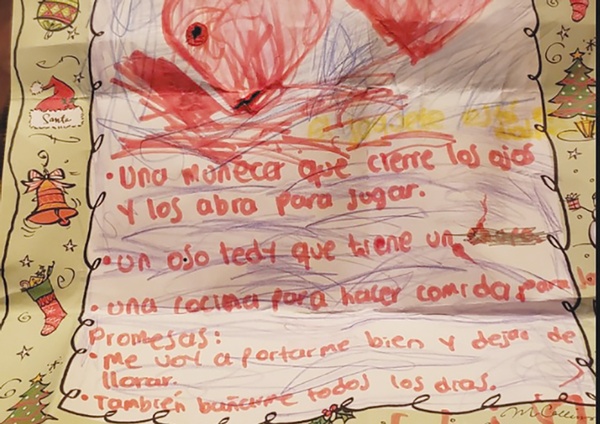 Santa
• Una muñeca que cierre los ojos
y los abra para jugar.
• un oso tedy que tiene un
• una cocina para hacer comida para
Promesas:
• Me voy a portarme bien y dejar de
llorar.
• También bañarme todos los dias.